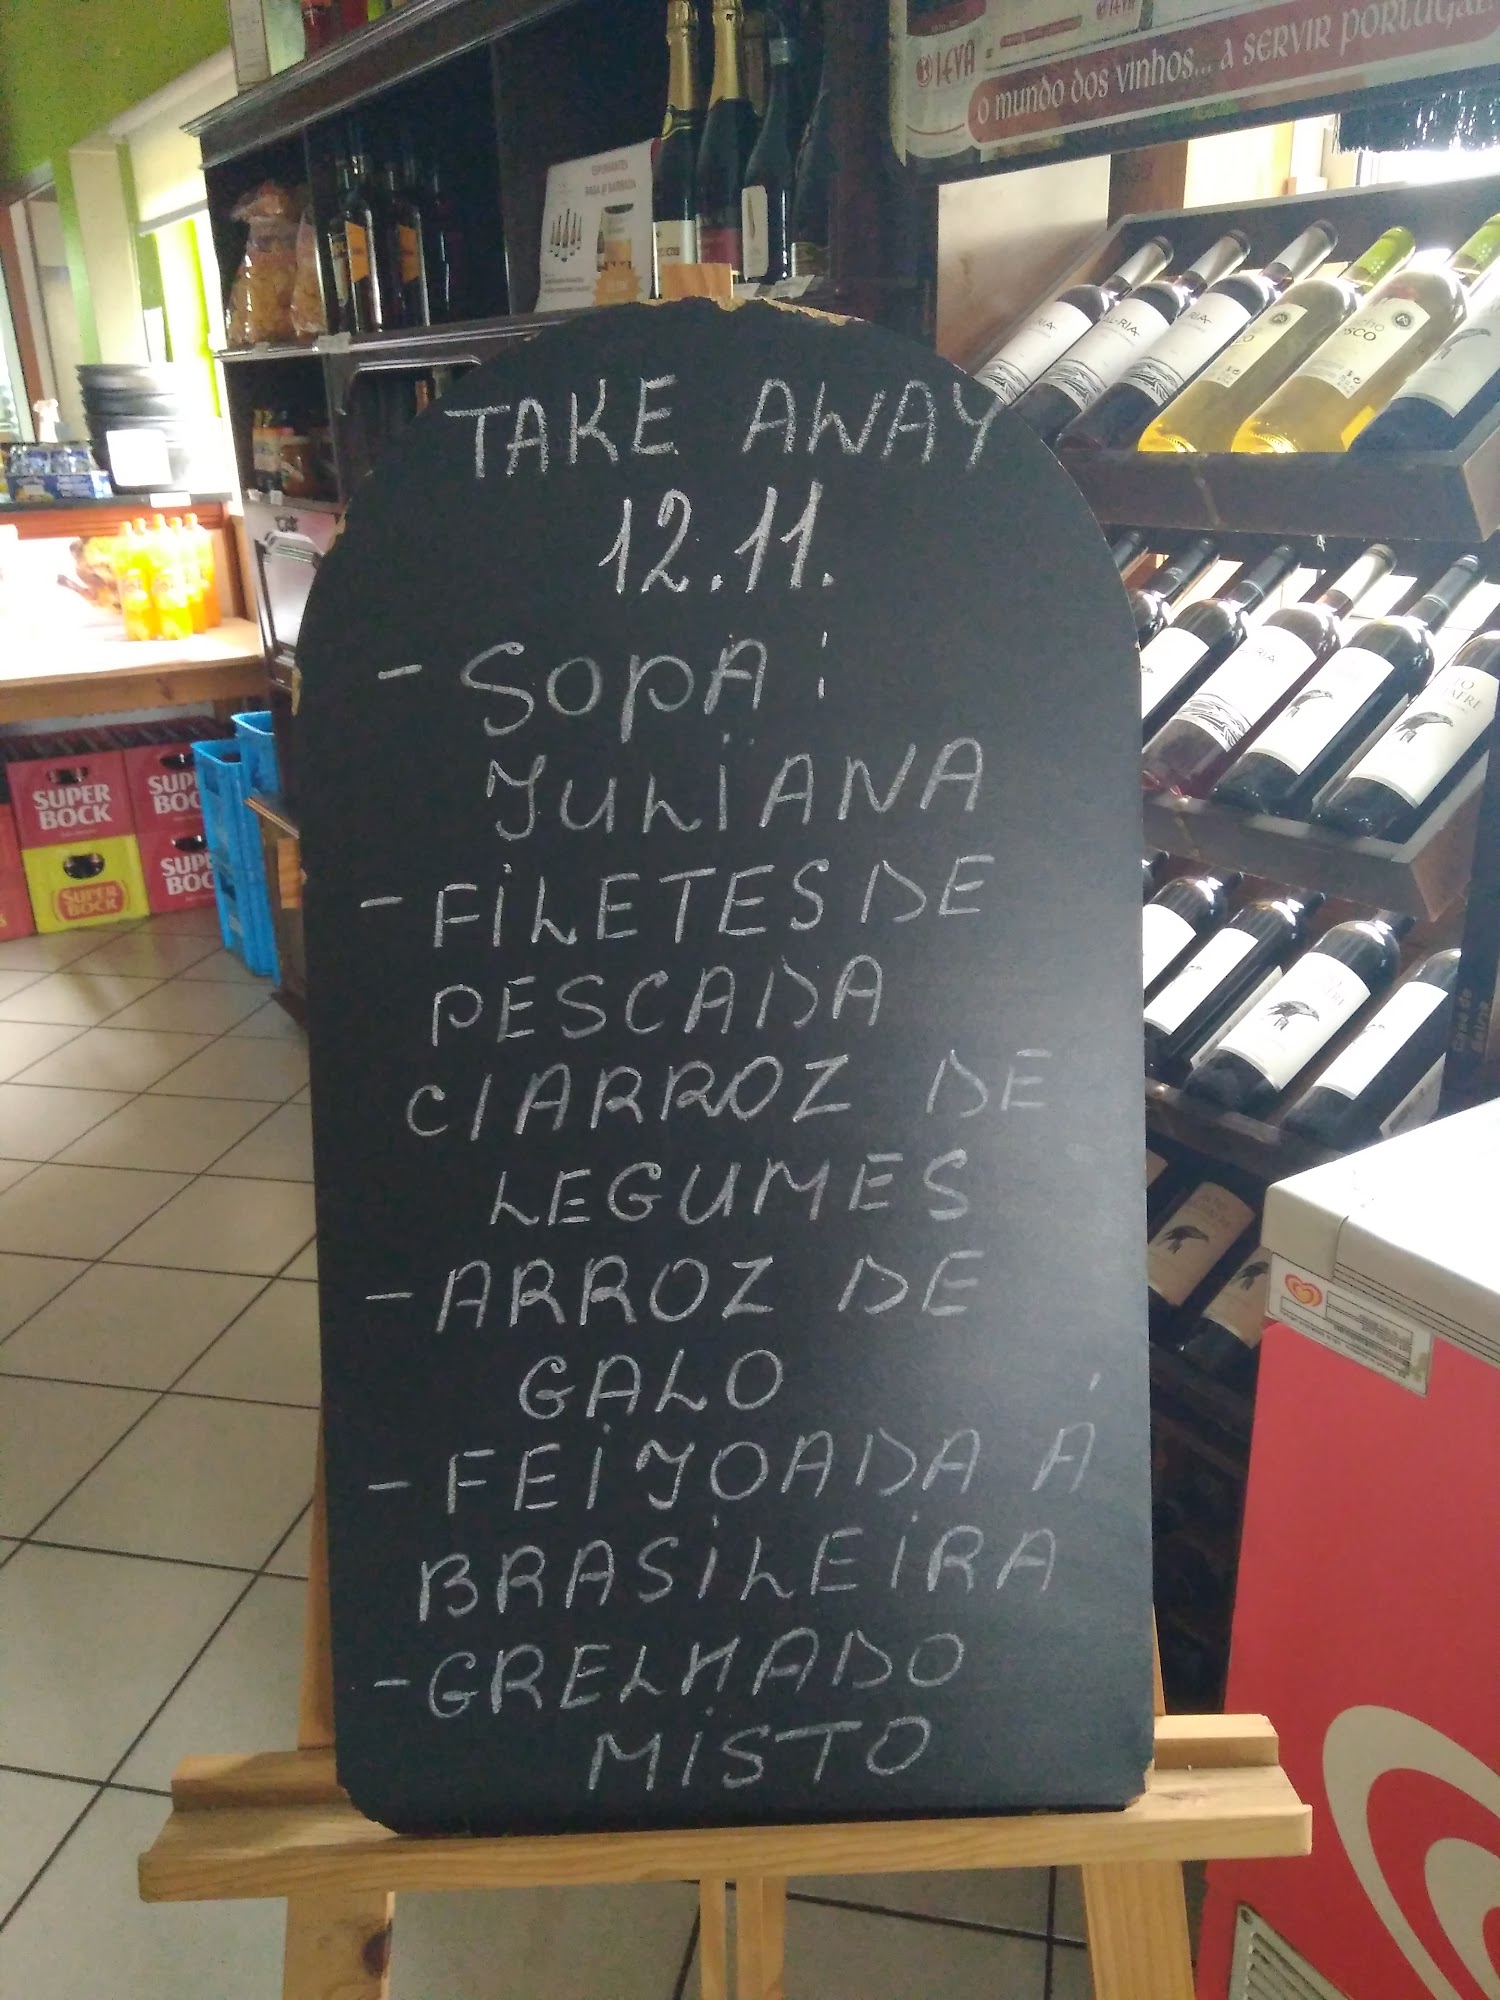 LEVA
o mundo dos vinhos... a servir portugal
ESPUMANTES
TAKE AWAY
12.11.
- SOPA:
JULIANA
- FILETES DE
PESCADA
C/ARROZ DE
LEGUMES
- ARROZ DE
GALO
- FEIJOADA Á
BRASILEIRA
- GRELHADO
MISTO
SUPER
BOCK
SUPER
BOCK